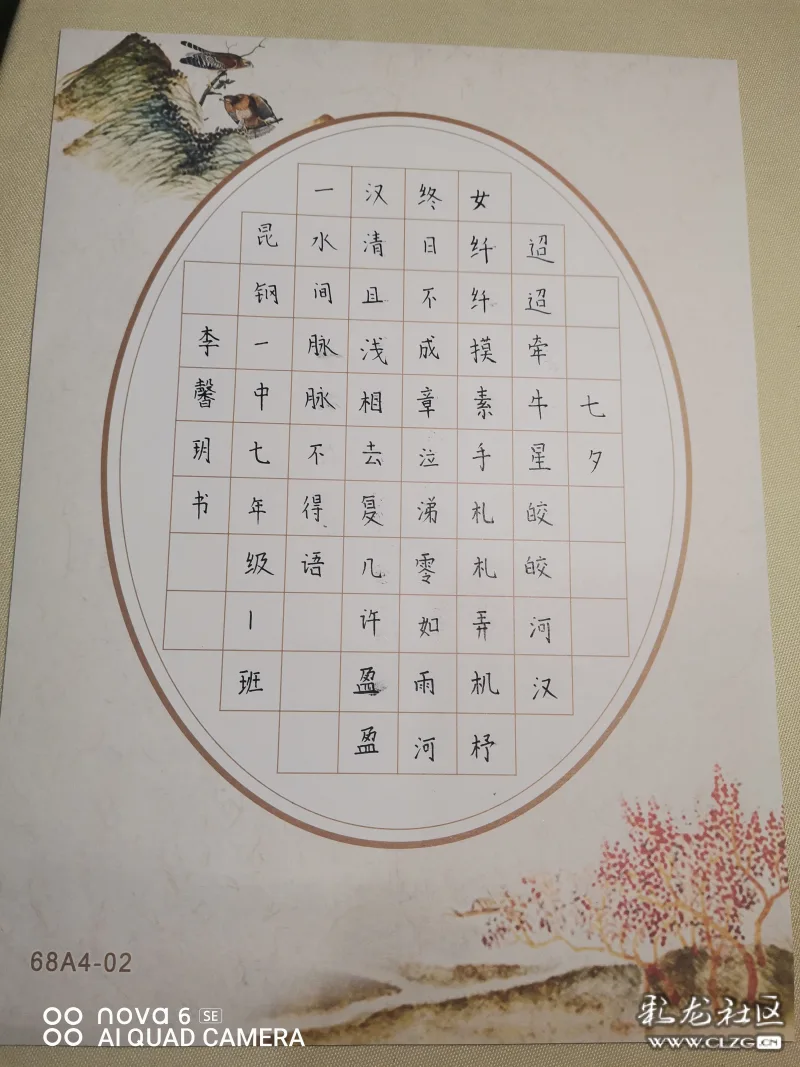 七夕
迢迢牵牛星皎皎河汉
女纤纤摸素手札札弄机杼
终日不成章泣涕零如雨河
汉清且浅相去复几许盈盈
一水间脉脉不得语
昆钢一中七年级1班
李馨玥书
68A4-02
nova 6 SE
AI QUAD CAMERA
彩龙社区
WWW.CLZG.CN